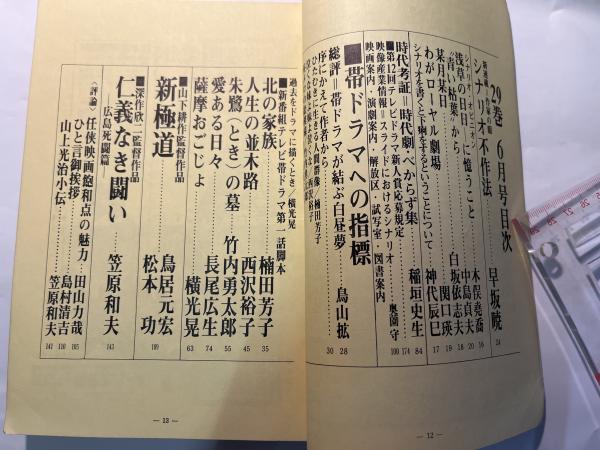 29巻 6月号目次
シナリオ不作法
早坂暁
24
シナリオ・オピニオン
木俣堯喬
16
浅草の一日に憶うこと
中島貞夫
20
“青い枯葉”から
白坂依志夫
18
某月某日
関口瑛
19
わがロイヤル劇場
神代辰巳
17
シナリオを書くと下痢をするということについて
時代考証=時代劇べからず集
稲垣史生
84
■第12回テレビドラマ新人賞応募規定
174
映像産業情報=スライドにおけるシナリオ
奥薗守
100
映画案内・演劇案内・解放区・試写室・図書案内
■帯ドラマへの指標
総評=帯ドラマが結ぶ白昼夢
鳥山拡
28
序にかえて作者から
30
ひたむきに生きる人間群像/楠田芳子
過去をドラマに描くとき/横光晃
■新番組テレビ帯ドラマ第一話脚本
北の家族
楠田芳子
35
人生の並木路
西沢裕子
45
朱鷺(とき)の墓
竹内勇太郎
55
愛ある日々
長尾広生
74
薩摩おごじょ
横光晃
63
■山下耕作監督作品
新極道
鳥居元宏
松本功
109
■深作欣二監督作品
仁義なき闘い
—広島死闘篇—
笠原和夫
143
〈評論〉
任侠映画飽和点の魅力
田山力哉
105
ひと言御挨拶
島村清吉
110
山上光治小伝
笠原和夫
141
— 13 —
— 12 —